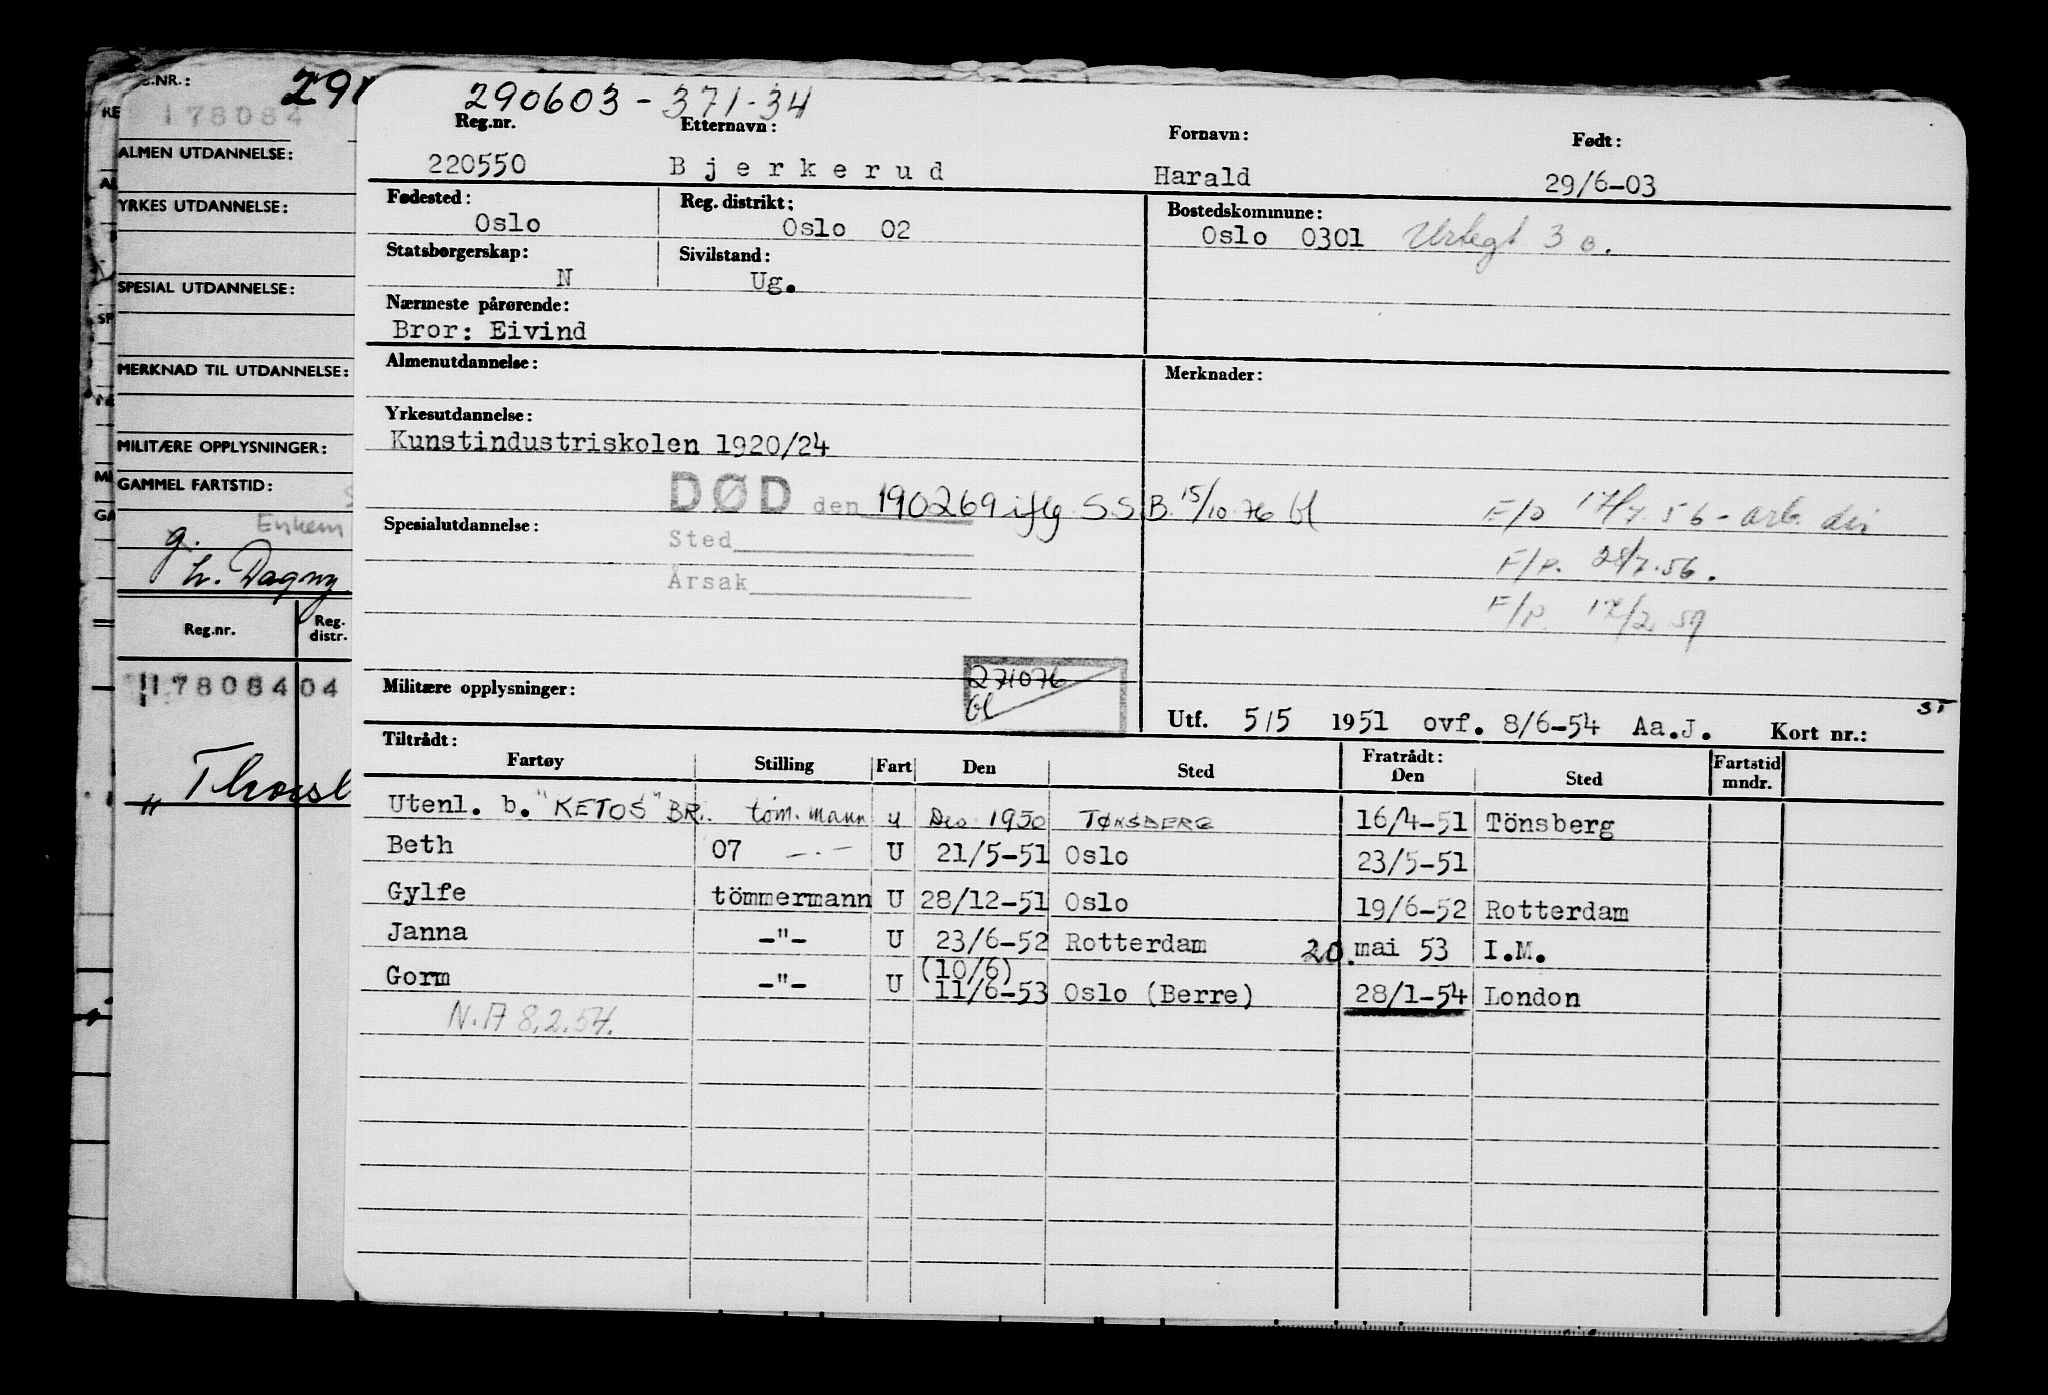 290603-371-34
Reg.nr. Etternavn: Fornavn: Født:
220550 Bjerkerud Harald 29/6-03
Fødested: Reg. distrikt: Bostedskommune:
Oslo Oslo 02 Oslo 0301 Urtegt 3 b.
Statsborgerskap: Sivilstand:
N Ug.
Nærmeste pårørende:
Bror: Eivind
Almenutdannelse: Merknader:
Yrkesutdannelse:
Kunstindustriskolen 1920/24
DØD den 190269 iflg. S.S.B. 15/10 76 bl
F/p 17/7.56 - arb. dir
Spesialutdannelse: Sted
F/p. 28/7.56.
Årsak
F/p. 17/2 59
271076
bl
Militære opplysninger:
Utf. 5/5 1951 ovf. 8/6-54 Aa.J. Kort nr.:
Tiltrådt: Fratrådt:
Fartøy Stilling Fart Den Sted Den Sted Fartstid mndr.
Utenl. b. "KETOS" BR. töm. mann u Des 1950 TØNSBERG 16/4-51 Tönsberg
Beth 07 —.— U 21/5-51 Oslo 23/5-51
Gylfe tömmermann U 28/12-51 Oslo 19/6-52 Rotterdam
Janna -"- U 23/6-52 Rotterdam 20. mai 53 I.M.
Gorm -"- U (10/6) 11/6-53 Oslo (Berre) 28/1-54 London
N.A 8.2.54.
.NR.:
178084
ALMEN UTDANNELSE:
YRKES UTDANNELSE:
SPESIAL UTDANNELSE:
MERKNAD TIL UTDANNELSE:
MILITÆRE OPPLYSNINGER:
GAMMEL FARTSTID:
Enkem
g.
h. Dagny
Reg.nr. Reg. distr.
178084 04
" Thorsl